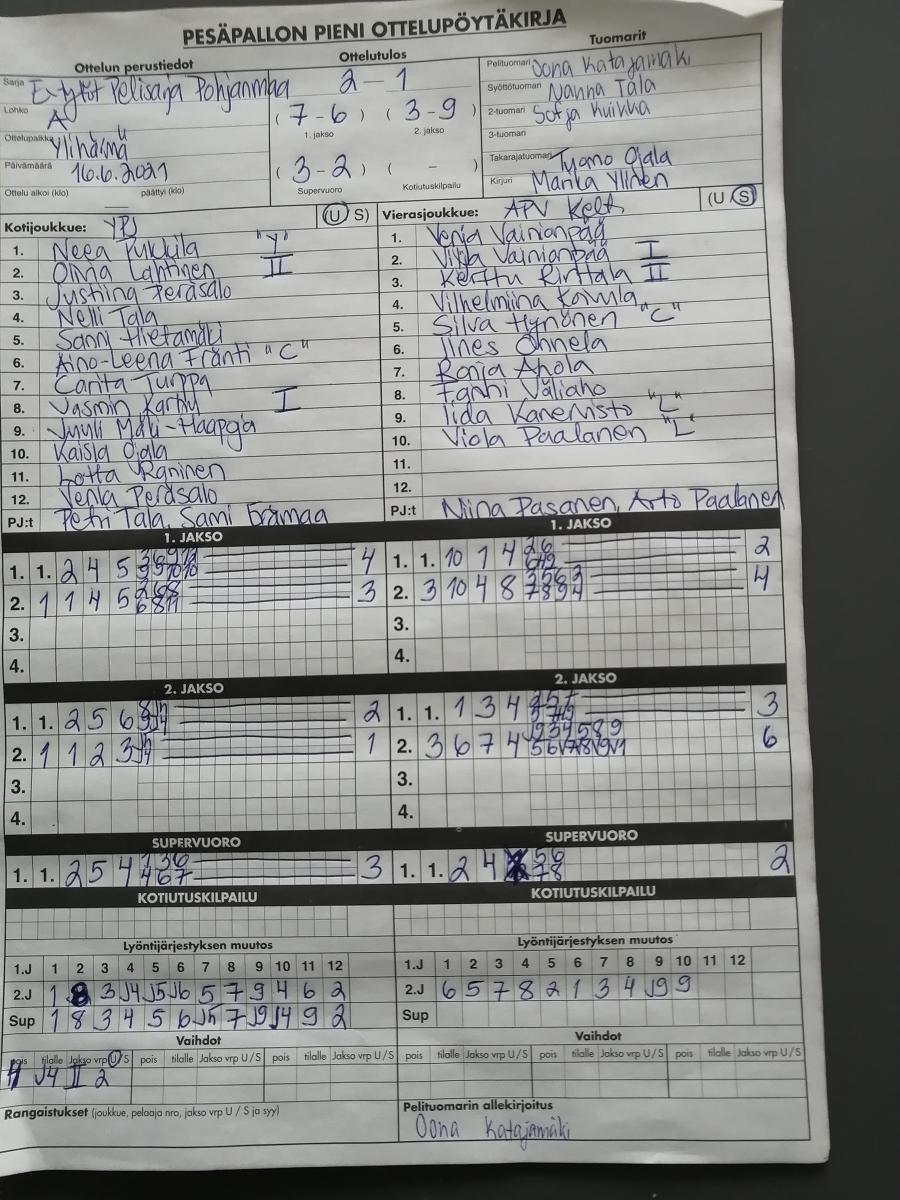 PESÄPALLON PIENI OTTELUPÖYTÄKIRJA
Ottelun perustiedot
Sarja E-tytöt Pelisarja Pohjanmaa
Lohko A
Ottelupaikka Ylihärmä
Päivämäärä 16.6.2021
Ottelu alkoi (klo) päättyi (klo)
Ottelutulos
2 - 1
(7-6) (3-9)
1. jakso 2. jakso
(3-2) ( - )
Supervuoro Kotiutuskilpailu
Tuomarit
Pelituomari Oona Katajamäki
Syöttötuomari Nanna Tala
2-tuomari Sofja Kuikka
3-tuomari
Takarajatuomari Tuomo Ojala
Kirjuri Marika Ylinen
Kotijoukkue: YPJ (U S)
1. Neea Pukkila "Y"
2. Olivia Lahtinen II
3. Justiina Peräsalo
4. Nelli Tala
5. Sanni Hietamäki
6. Aino-Leena Fränti "C"
7. Carita Turppa
8. Jasmin Karhu I
9. Juuli Mäki-Haapoja
10. Kaisla Ojala
11. Lotta Raninen
12. Venla Peräsalo
PJ:t Petri Tala, Sami Erämaa
Vierasjoukkue: APV Kelt. (U S)
1. Venja Vainionpää
2. Vilja Vainionpää I
3. Kerttu Rinttala II
4. Vilhelmiina Koivula
5. Silva Hynönen "C"
6. Iines Ohnela
7. Ronja Ahola
8. Fanni Väliaho
9. Iida Kanernisto "L"
10. Viola Paalanen "L"
11.
12.
PJ:t Niina Pasanen, Arto Paalanen
1. JAKSO
1. 1. 2 4 5 4
2. 1 1 4 5 3
3.
4.
1. JAKSO
1. 1. 10 1 4 2
2. 3 10 4 8 4
3.
4.
2. JAKSO
1. 1. 2 5 6 2
2. 1 1 2 3 1
3.
4.
2. JAKSO
1. 1. 1 3 4 3
2. 3 6 7 4 6
3.
4.
SUPERVUORO
1. 1. 2 5 4 3
SUPERVUORO
1. 1. 2 4 56 78 2
KOTIUTUSKILPAILU
KOTIUTUSKILPAILU
Lyöntijärjestyksen muutos
1.J 1 2 3 4 5 6 7 8 9 10 11 12
2.J 1 8 3 J4 J5 J6 5 7 9 4 6 2
Sup 1 8 3 4 5 6 J5 7 J9 J4 9 2
Lyöntijärjestyksen muutos
1.J 1 2 3 4 5 6 7 8 9 10 11 12
2.J 6 5 7 8 2 1 3 4 J9 9
Sup
Vaihdot
pois tilalle Jakso vrp U/S pois tilalle Jakso vrp U/S pois tilalle Jakso vrp U/S
J4 II 2
Vaihdot
pois tilalle Jakso vrp U/S pois tilalle Jakso vrp U/S pois tilalle Jakso vrp U/S
Rangaistukset (joukkue, pelaaja nro, jakso vrp U / S ja syy)
Pelituomarin allekirjoitus
Oona Katajamäki